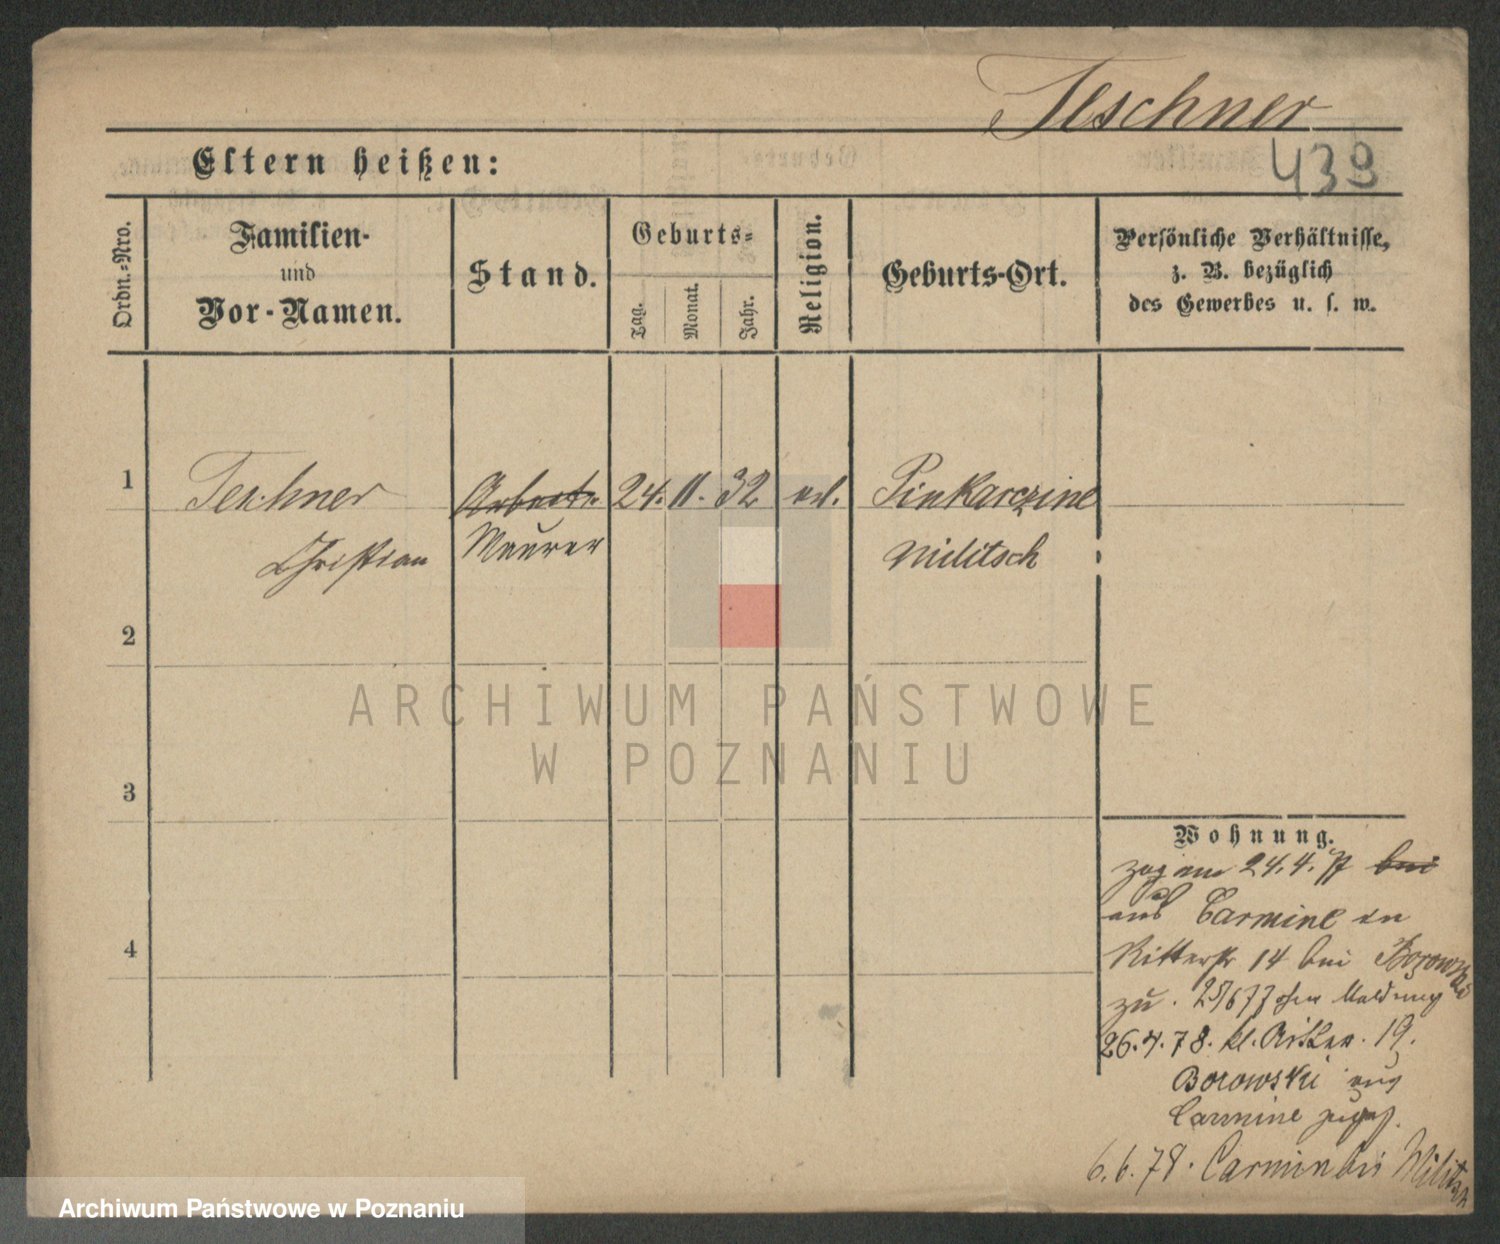 Teschner
439
Eltern heißen:
Ordn.-Nro.
Familien-
und
Vor-Namen.
Stand.
Geburts-
Tag.
Monat.
Jahr.
Religion.
Geburts-Ort.
Persönliche Verhältnisse,
z. B. bezüglich
des Gewerbes u. s. w.
1
Teschner
Arbeitr.
24. 11. 32
evl.
Pinkarczine
Christian
Maurer
Militsch
2
ARCHIWUM PAŃSTWOWE
W POZNANIU
3
4
Wohnung.
zog am 24.4.77 bei
aus Carmine an
Ritterstr 14 bei Borowski
zu. 25/6 77 ohne Meldung
26.4.78. kl. Ritter. 19.
Borowski aus
Carmine
6.6.78. Carmin bei Militsch
Archiwum Państwowe w Poznaniu